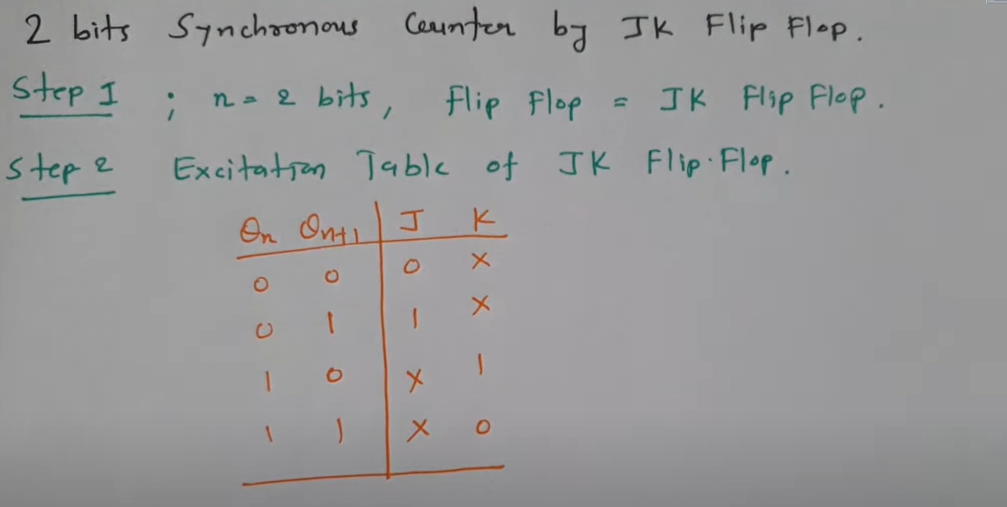 2 bits Synchronous Counter by JK Flip Flop.
Step I ; n = 2 bits, Flip Flop = JK Flip Flop.
Step 2 Excitation Table of JK Flip-Flop.
Qn Qn+1 J K
0 0 0 X
0 1 1 X
1 0 X 1
1 1 X 0